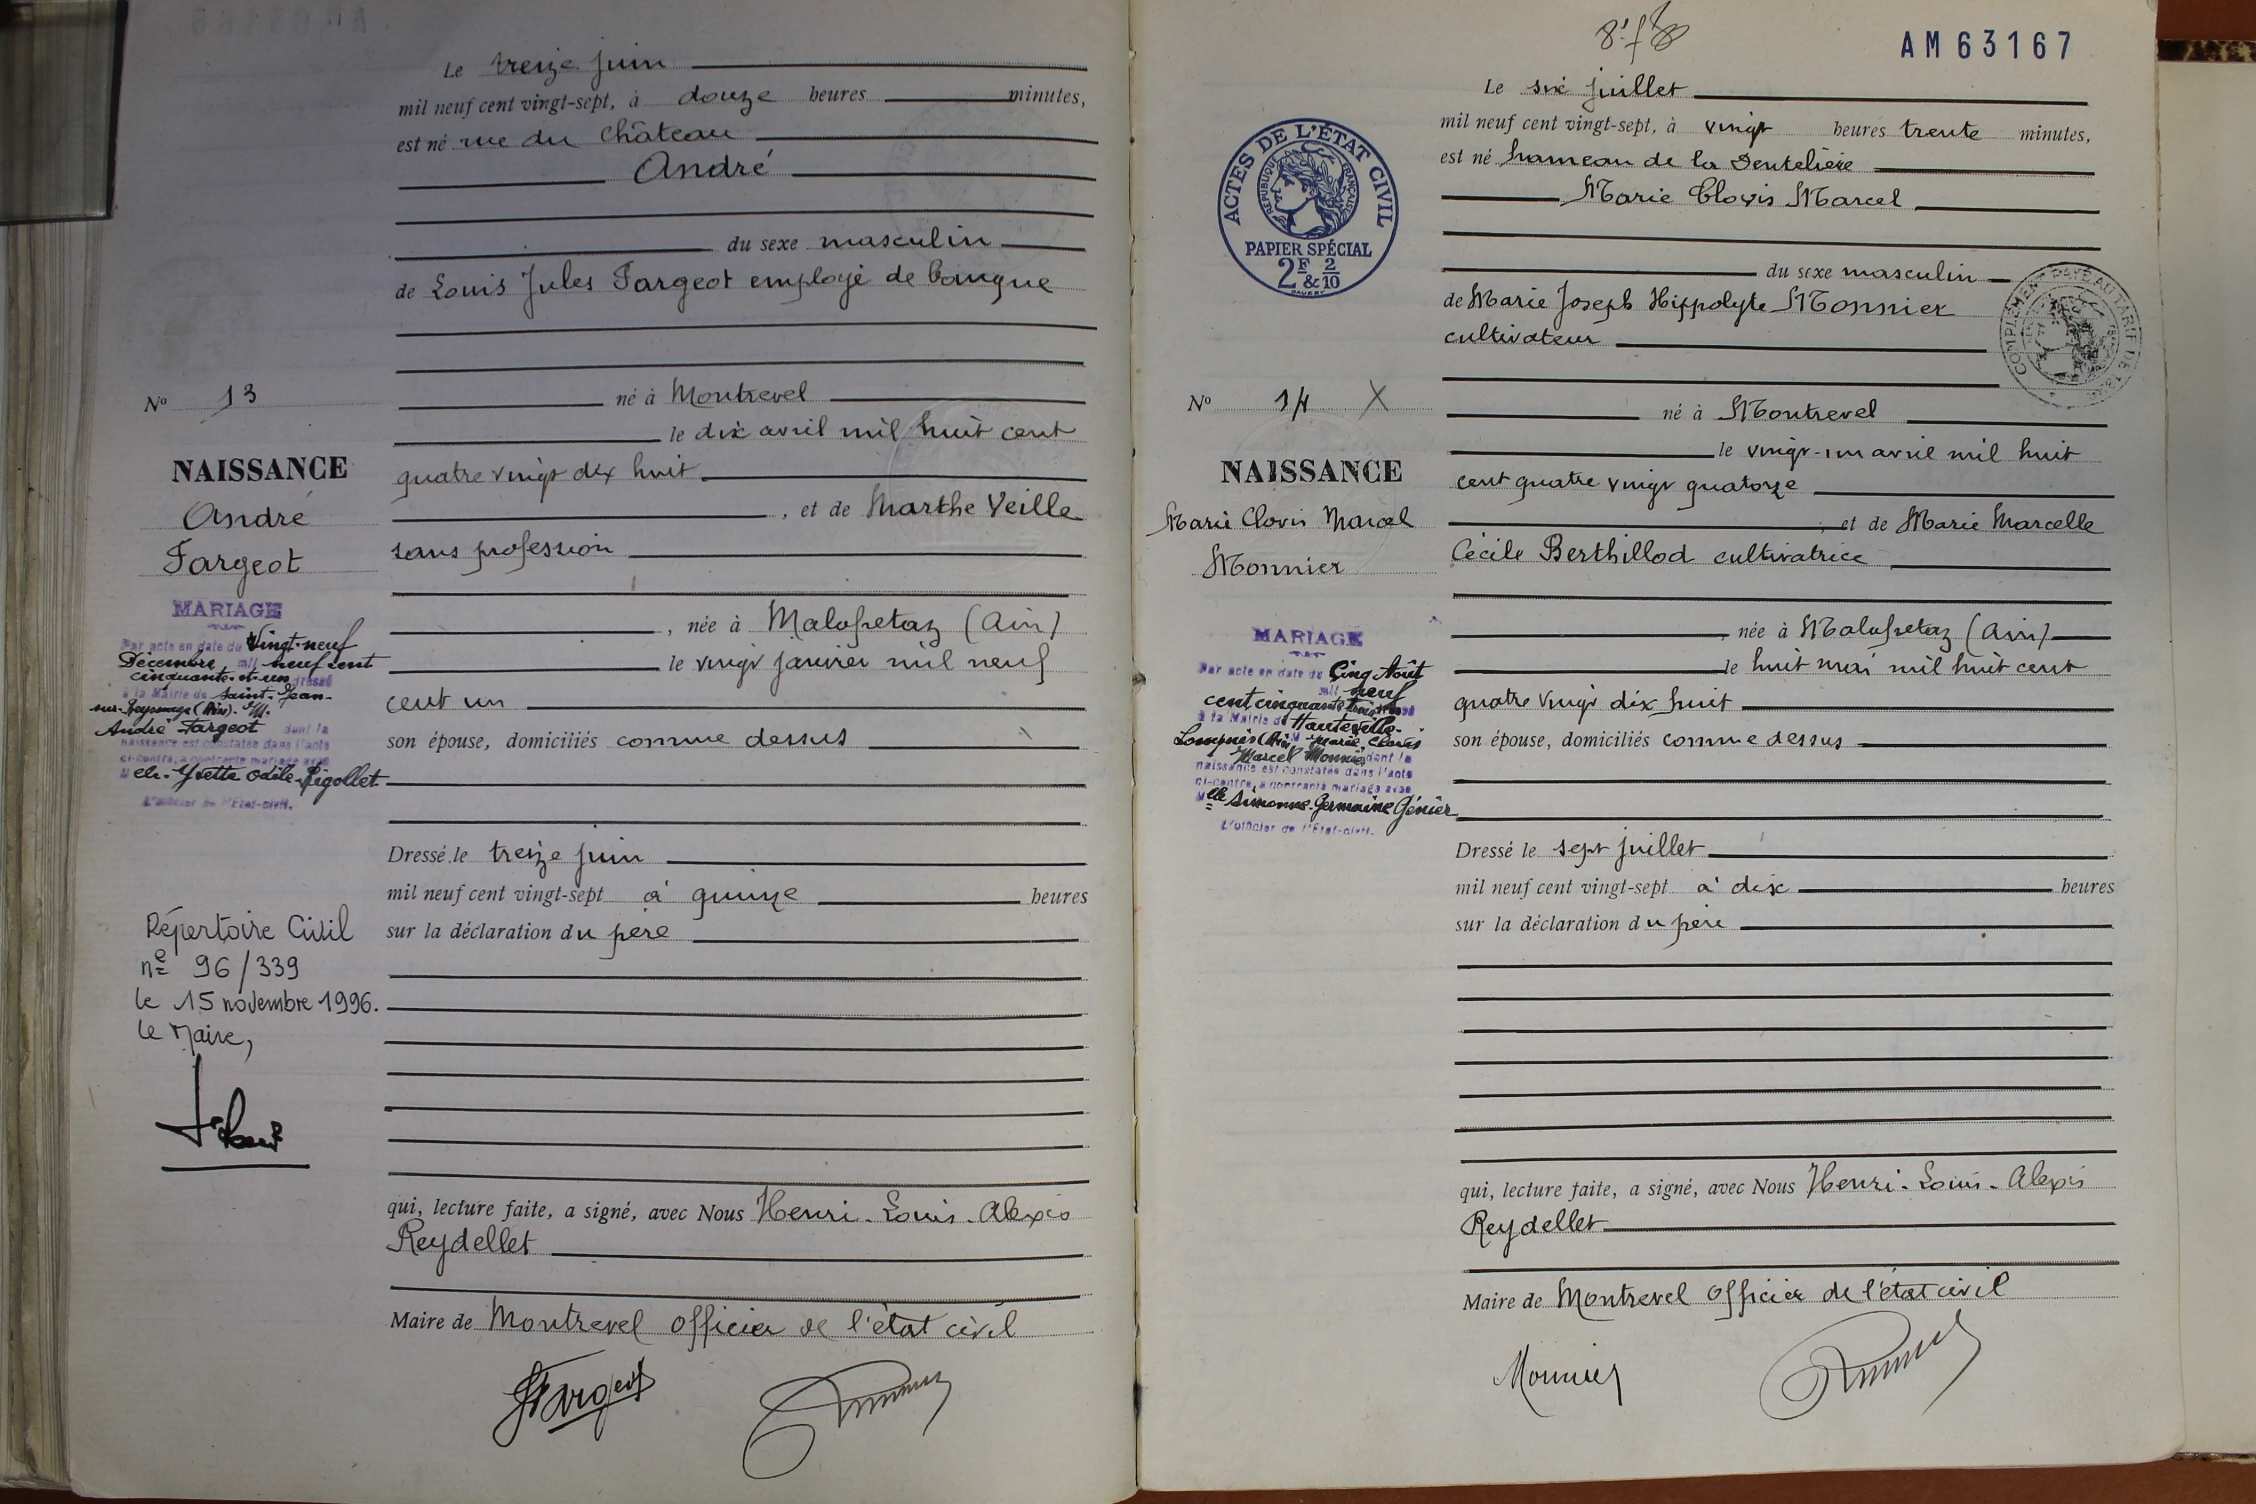 Le treize juin
mil neuf cent vingt-sept, à douze heures minutes,
est né rue du Château
André
du sexe masculin
de Louis Jules Fargeot employé de banque
né à Montrevel
le dix avril mil huit cent
quatre vingt dix huit
, et de Marthe Veille
sans profession
, née à Malafretaz (Ain)
le vingt janvier mil neuf
cent un
son épouse, domiciliés comme dessus
Dressé le treize juin
mil neuf cent vingt-sept à quinze heures
sur la déclaration du père
qui, lecture faite, a signé, avec Nous Henri-Louis-Alexis
Reydellet
Maire de Montrevel officier de l'état civil
Fargeot
No 13
NAISSANCE
André
Fargeot
MARIAGE
Par acte en date du Vingt-neuf
Décembre mil neuf cent
cinquante-et-un dressé
à la Mairie de Saint-Jean-
sur-Reyssouze (Ain). M.
André Fargeot dont la
naissance est constatée dans l'acte
ci-contre, a contracté mariage avec
Melle. Yvette Odile Rigollet.
L'officier de l'Etat-civil.
Répertoire Civil
ne 96/339
le 15 novembre 1996.
Le Maire,
AM63167
Le six juillet
mil neuf cent vingt-sept, à vingt heures trente minutes,
est né hameau de la Dentelière
Marie Clovis Marcel
du sexe masculin
de Marie Joseph Hippolyte Monnier
cultivateur
né à Montrevel
le vingt-un avril mil huit
cent quatre vingt quatorze
, et de Marie Marcelle
Cécile Berthillod cultivatrice
née à Malafretaz (Ain)
le huit mai mil huit cent
quatre vingt dix huit
son épouse, domiciliés comme dessus
Dressé le sept juillet
mil neuf cent vingt-sept à dix heures
sur la déclaration du père
qui, lecture faite, a signé, avec Nous Henri-Louis-Alexis
Reydellet
Maire de Montrevel officier de l'état civil
Monnier
ACTES DE L'ÉTAT CIVIL
RÉPUBLIQUE FRANÇAISE
PAPIER SPÉCIAL
2F & 2/10
COMPLÉMENT PAYÉ AU TARIF DE
No 14 X
NAISSANCE
Marie Clovis Marcel
Monnier
MARIAGE
Par acte en date du Cinq Août
mil neuf
cent cinquante trois dressé
à la Mairie de Hauteville-
Lompnès (Ain) M. Marie Clovis
Marcel Monnier dont la
naissance est constatée dans l'acte
ci-contre, a contracté mariage avec
Melle Simonne Germaine Génier
L'officier de l'Etat-civil.